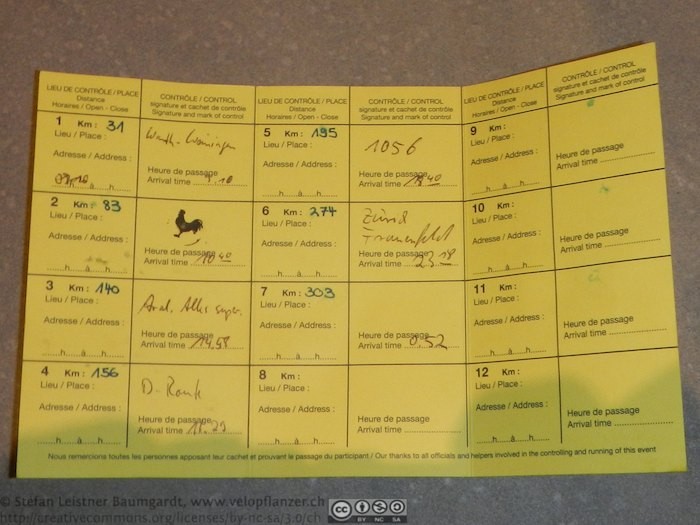 LIEU DE CONTRÔLE / PLACE
Distance
Horaires / Open - Close
CONTRÔLE / CONTROL
signature et cachet de contrôle
Signature and mark of control
1 Km : 31
Lieu / Place :
Adresse / Address :
h à h
Heure de passage
Arrival time
2 Km : 83
Lieu / Place :
Adresse / Address :
h à h
Heure de passage
Arrival time 10 40
3 Km : 140
Lieu / Place :
Adresse / Address :
h à h
Heure de passage
Arrival time 14.58
4 Km : 156
Lieu / Place :
Adresse / Address :
h à h
Heure de passage
Arrival time
LIEU DE CONTRÔLE / PLACE
Distance
Horaires / Open - Close
CONTRÔLE / CONTROL
signature et cachet de contrôle
Signature and mark of control
5 Km : 195
Lieu / Place :
Adresse / Address :
h à h
1056
Heure de passage
Arrival time
6 Km : 274
Lieu / Place :
Adresse / Address :
h à h
Frauenfeld
Heure de passage
Arrival time 23 18
7 Km : 303
Lieu / Place :
Adresse / Address :
h à h
Heure de passage
Arrival time 0.52
8 Km :
Lieu / Place :
Adresse / Address :
h à h
Heure de passage
Arrival time
LIEU DE CONTRÔLE / PLACE
Distance
Horaires / Open - Close
CONTRÔLE / CONTROL
signature et cachet de contrôle
Signature and mark of control
9 Km :
Lieu / Place :
Adresse / Address :
h à h
Heure de passage
Arrival time
10 Km :
Lieu / Place :
Adresse / Address :
h à h
Heure de passage
Arrival time
11 Km :
Lieu / Place :
Adresse / Address :
h à h
Heure de passage
Arrival time
12 Km :
Lieu / Place :
Adresse / Address :
h à h
Heure de passage
Arrival time
Nous remercions toutes les personnes apposant leur cachet et prouvant le passage du participant / Our thanks to all officials and helpers involved in the controlling and running of this event
© Stefan Leistner Baumgardt, www.velopflanzer.ch
http://creativecommons.org/licenses/by-nc-sa/3.0/ch
cc BY NC SA